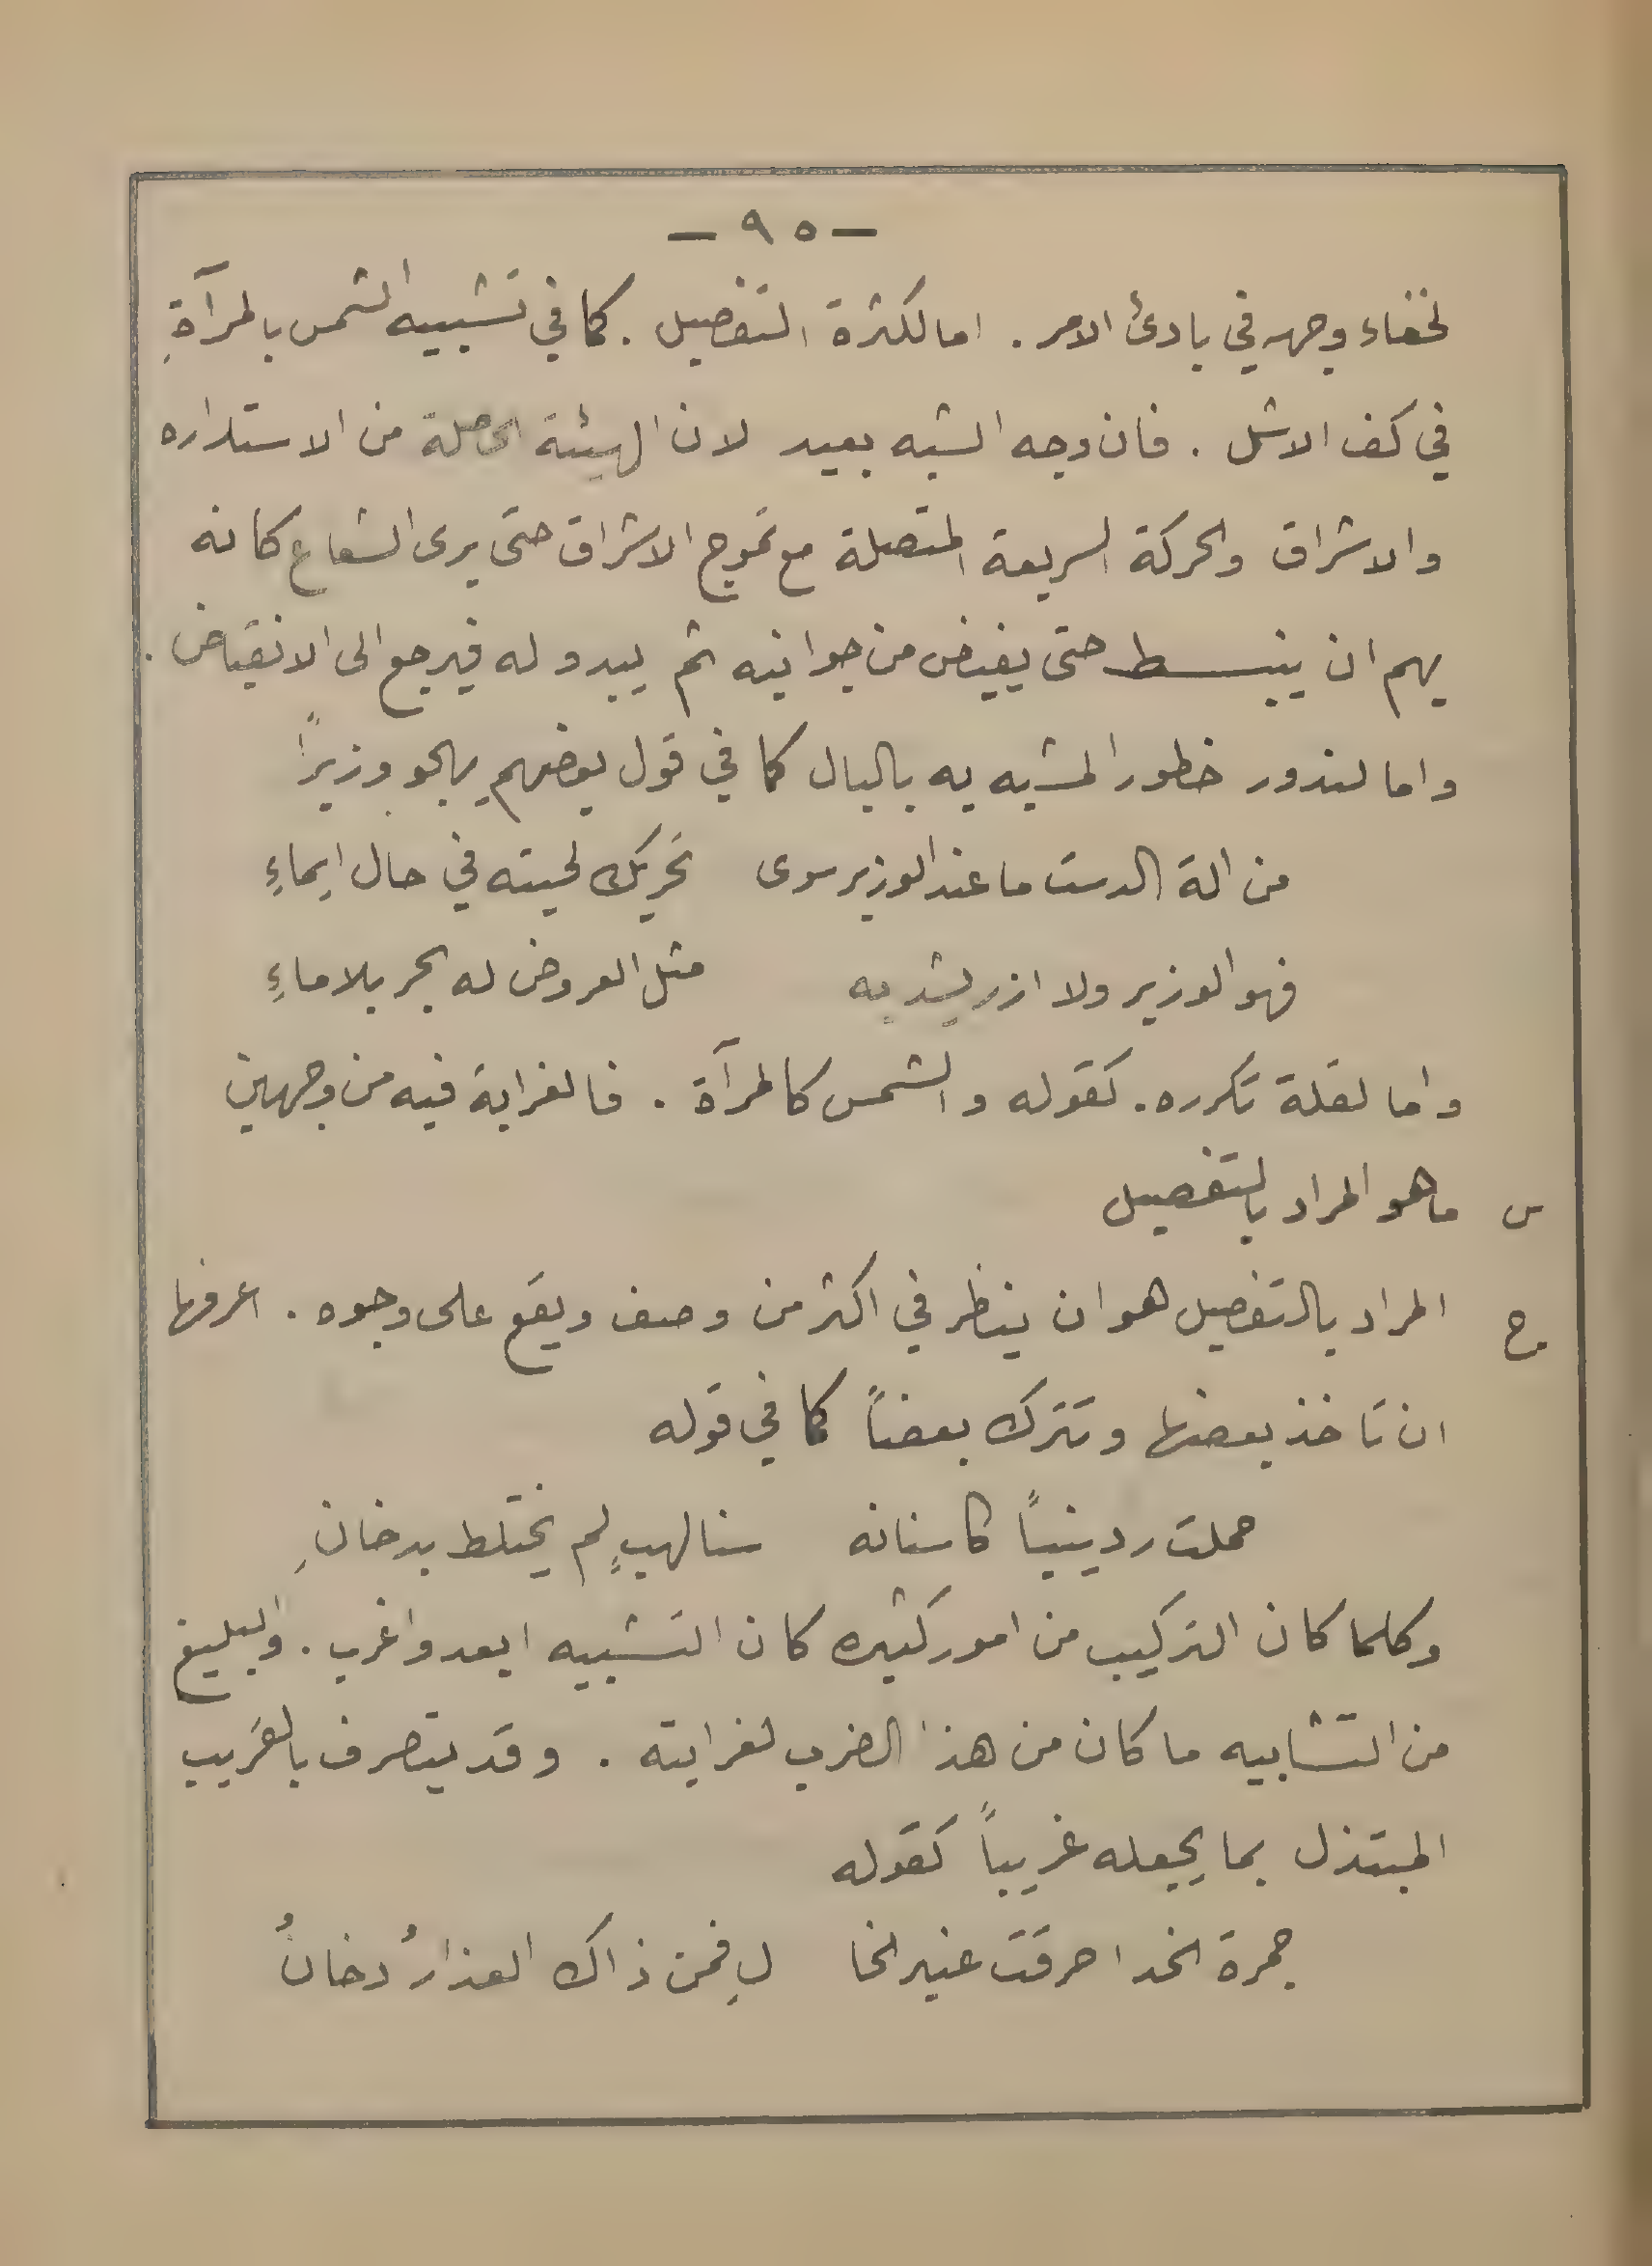 - ٩٥ -
لخفاء وجهه في بادئ الامر . اما لكثرة التفصيل . كما في تشبيه الشمس بالمرآةِ
في كف الاشل . فان وجه الشبه بعيد لان الهيئة الحاصلة من الاستداره
والاشراق والحركة السريعة المتصلة مع تموج الاشراق حتى يرى الشعاع كانه
يهم ان ينبسط حتى يفيض من جوانبه ثم يبدو له فيرجع الى الانقباض .
واما لندور خطور المشبه به بالبال كما في قول بعضهم يهجو وزيراً
من الة الدست ما عند الوزير سوى تحريك لحيته في حال ايماءِ
فهو الوزير ولا ازر يشد به مثل العروض له بحر بلا ماءِ
واما لقلة تكرره . كقوله والشمس كالمرآة . فالغرابة فيه من وجهين
س ما هو المراد بالتفصيل
ج المراد بالتفصيل هو ان ينظر في اكثر من وصف ويقع على وجوه . اعرفها
ان تاخذ بعضها وتترك بعضاً كما في قوله
حملت ردينياً كاسنانه سنا لهبٍ لم يختلط بدخانِ
وكلما كان التركيب من امور كثيره كان التشبيه ابعد واغرب . والبليغ
من التشابيه ما كان من هذا الضرب لغرابته . وقد يتصرف بالقريب
المبتذل بما يجعله غريباً كقوله
جمرة الخد احرقت عنبر الخا لِ فمن ذاك العذارُ دخانُ